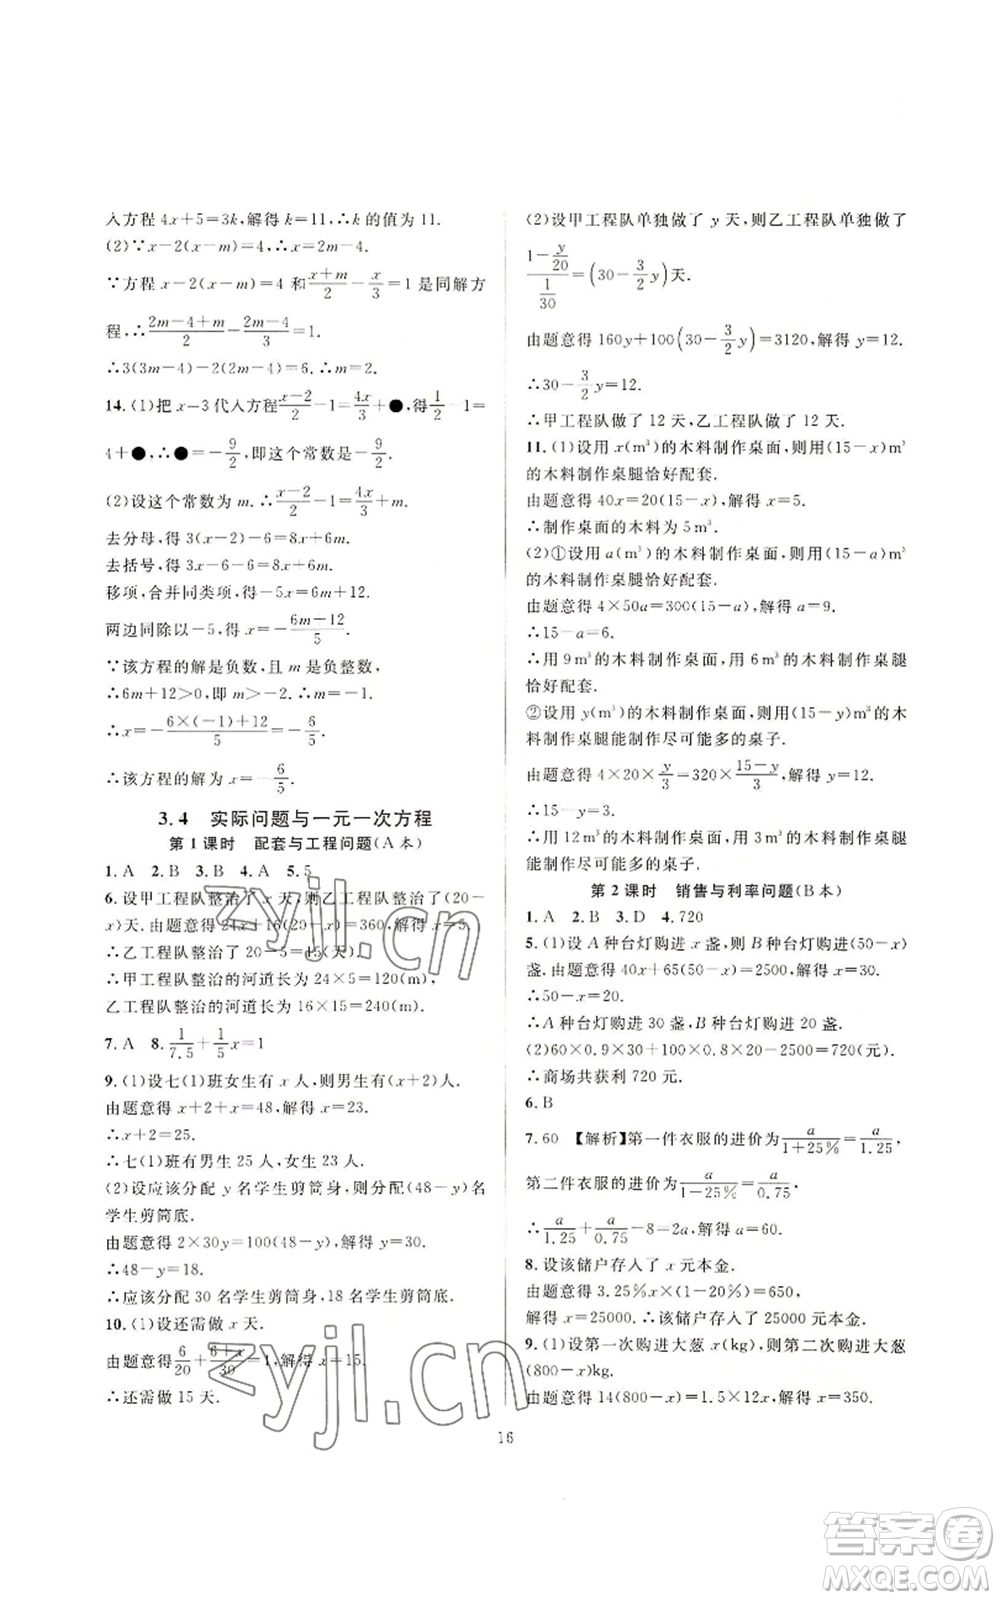 入方程 4x+5=3k,解得 k=11,∴k 的值为 11.
(2)∵x-2(x-m)=4,∴x=2m-4.
∵方程 x-2(x-m)=4 和 (x+m)/2-x/3=1 是同解方
程,∴(2m-4+m)/2-(2m-4)/3=1.
∴3(3m-4)-2(2m-4)=6.∴m=2.
14.(1)把 x=3代入方程(x-2)/2-1=4x/3+●,得1/2-1=
4+●,∴●=-9/2,即这个常数为-9/2.
(2)设这个常数为 m.∴(x-2)/2-1=4x/3+m.
去分母,得 3(x-2)-6=8x+6m.
去括号,得 3x-6-6=8x+6m.
移项,合并同类项,得-5x=6m+12.
两边同除以-5,得 x=-(6m+12)/5.
∵该方程的解是负数,且 m 是负整数,
∴6m+12>0,即 m>-2.∴m=-1.
∴x=-(6×(-1)+12)/5=-6/5.
∴该方程的解为 x=-6/5.
3.4 实际问题与一元一次方程
第 1 课时 配套与工程问题(A 本)
1.A 2.B 3.B 4.A 5.B
6.设甲工程队整治了 x 天,则乙工程队整治了(20-
x)天.由题意得 24x+16(20-x)=360,解得 x=5.
∴乙工程队整治了 20-5=15(天).
∴甲工程队整治的河道长为 24×5=120(m),
乙工程队整治的河道长为 16×15=240(m).
7.A 8.1/7.5+1/5x=1
9.(1)设七(1)班女生有 x 人,则男生有(x+2)人.
由题意得 x+2+x=48,解得 x=23.
∴x+2=25.
∴七(1)班有男生 25 人,女生 23 人.
(2)设应该分配 y 名学生剪筒身,则分配(48-y)名
学生剪筒底.
由题意得 2×30y=100(48-y),解得 y=30.
∴48-y=18.
∴应该分配 30 名学生剪筒身,18 名学生剪筒底.
10.(1)设还需做 x 天.
由题意得6/20+(6+x)/30=1,解得 x=15.
∴还需做 15 天.
(2)设甲工程队单独做了 y 天,则乙工程队单独做了
(1-y/20)/(1/30)=(30-3/2y)天.
由题意得 160y+100(30-3/2y)=3120,解得 y=12.
∴30-3/2y=12.
∴甲工程队做了 12 天,乙工程队做了 12 天.
11.(1)设用 x(m³)的木料制作桌面,则用(15-x)m³
的木料制作桌腿恰好配套.
由题意得 40x=20(15-x),解得 x=5.
∴制作桌面的木料为 5 m³.
(2)①设用 a(m³)的木料制作桌面,则用(15-a)m³
的木料制作桌腿恰好配套.
由题意得 4×50a=300(15-a),解得 a=9.
∴15-a=6.
∴用 9 m³ 的木料制作桌面,用 6 m³ 的木料制作桌腿
恰好配套.
②设用 y(m³)的木料制作桌面,则用(15-y)m³的木
料制作桌腿能制作尽可能多的桌子.
由题意得 4×20×y/3=320×(15-y)/3,解得 y=12.
∴15-y=3.
∴用 12 m³ 的木料制作桌面,用 3 m³ 的木料制作桌腿
能制作尽可能多的桌子.
第 2 课时 销售与利率问题(B 本)
1.A 2.B 3.D 4.720
5.(1)设 A 种台灯购进 x 盏,则 B 种台灯购进(50-x)
盏.由题意得 40x+65(50-x)=2500,解得 x=30.
∴50-x=20.
∴A 种台灯购进 30 盏,B 种台灯购进 20 盏.
(2)60×0.9×30+100×0.8×20-2500=720(元).
∴商场共获利 720 元.
6.B
7.60 【解析】第一件衣服的进价为a/(1+25%)=a/1.25,
第二件衣服的进价为a/(1-25%)=a/0.75,
∴a/1.25+a/0.75-8=2a,解得 a=60.
8.设该储户存入了 x 元本金.
由题意得 3.25%x×(1-20%)=650,
解得 x=25000.∴该储户存入了 25000 元本金.
9.(1)设第一次购进大葱 x(kg),则第二次购进大葱
(800-x)kg.
由题意得 14(800-x)=1.5×12x,解得 x=350.
16
zyjl.cn
zyjl.cn
答案卷
MXQE.COM